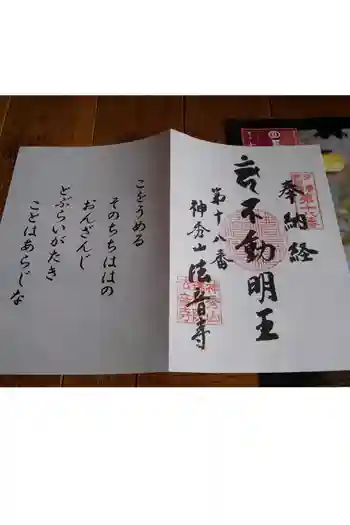 奉納経
不動明王
第十八番
神秀山
法音寺
こをうめる
そのちちははの
おんざんじ
とぶらいがたき
ことはあらじな